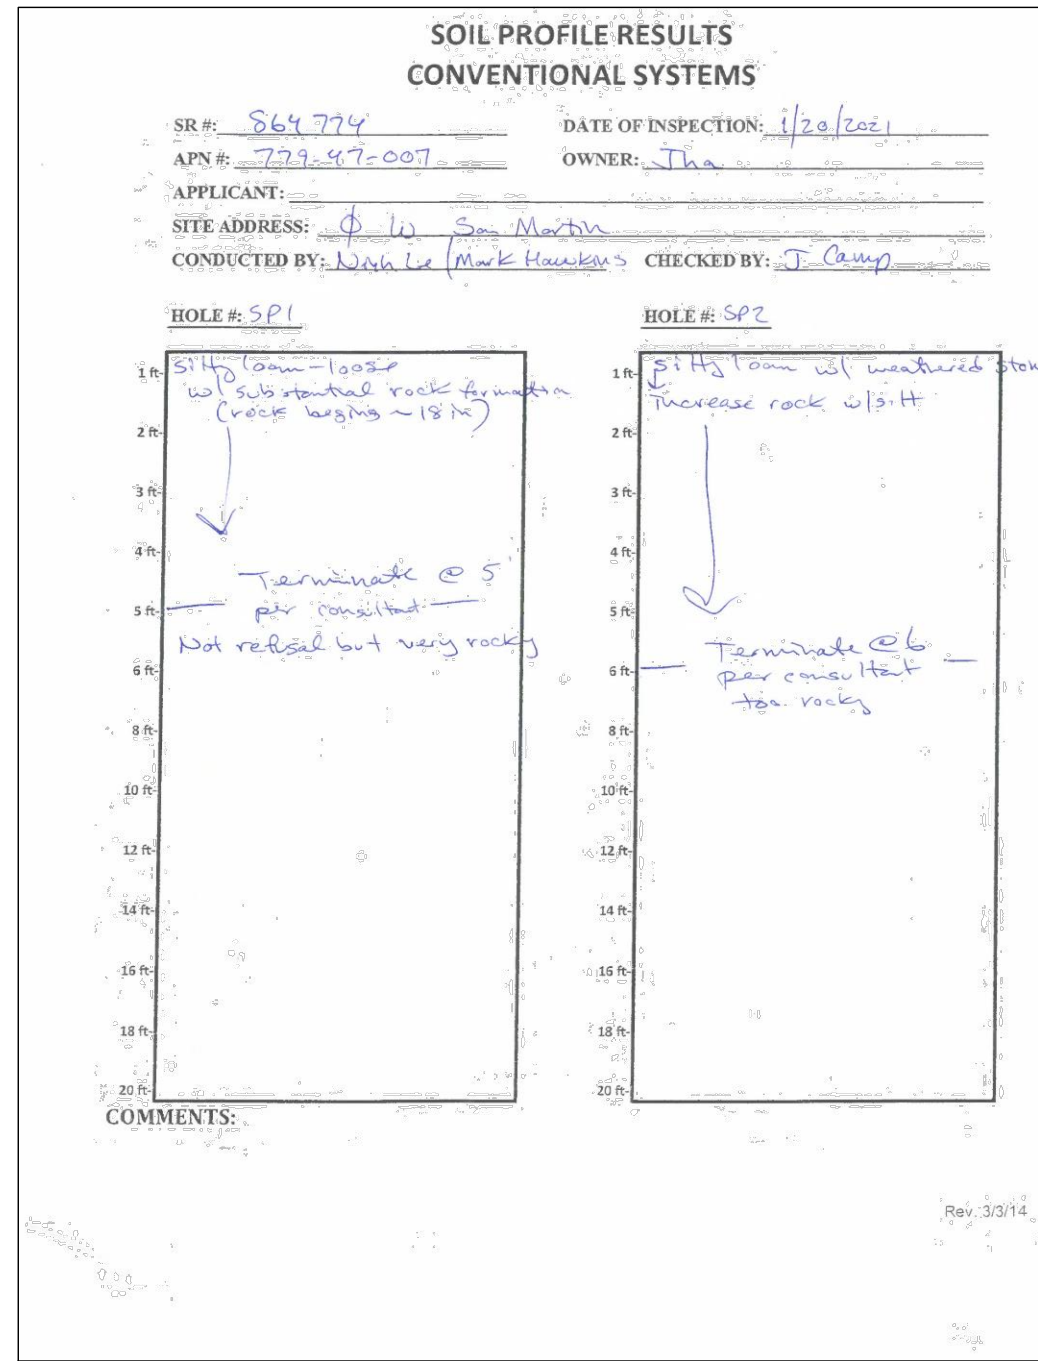 SOIL PROFILE RESULTS
CONVENTIONAL SYSTEMS
SR #: 864 774 DATE OF INSPECTION: 1/20/2021
APN #: 779-47-007 OWNER: Jha
APPLICANT:
SITE ADDRESS: Ø W San Martin
CONDUCTED BY: Le / Mark Hawkins CHECKED BY: J Camp
HOLE #: SP1 HOLE #: SP2
1 ft-
2 ft-
3 ft-
4 ft-
5 ft-
6 ft-
8 ft-
10 ft-
12 ft-
14 ft-
16 ft-
18 ft-
20 ft-
silty loam - loose
w/ substantial rock formation
(rock begins ~ 18 in)
Terminate @ 5
per consultant
Not refusal but very rocky
1 ft-
2 ft-
3 ft-
4 ft-
5 ft-
6 ft-
8 ft-
10 ft-
12 ft-
14 ft-
16 ft-
18 ft-
20 ft-
silty loam w/ weathered ston
increase rock w/ silt
Terminate @ 6
per consultant
too rocky
COMMENTS:
Rev. 3/3/14